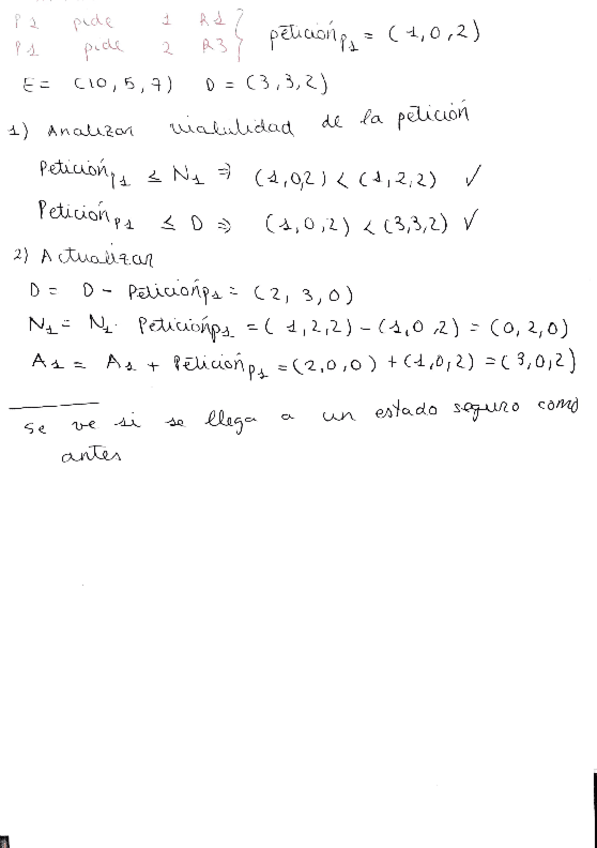 P1 pide 1 R1
P1 pide 2 R3 } petición_P1 = (1,0,2)
E = (10,5,7) D = (3,3,2)
1) Analizar viabilidad de la petición
Petición_P1 ≤ N1 ⇒ (1,0,2) < (1,2,2) ✓
Petición_P1 ≤ D ⇒ (1,0,2) < (3,3,2) ✓
2) Actualizar
D = D - Petición_P1 = (2,3,0)
N1 = N1 - Petición_P1 = (1,2,2) - (1,0,2) = (0,2,0)
A1 = A1 + Petición_P1 = (2,0,0) + (1,0,2) = (3,0,2)
se ve si se llega a un estado seguro como
antes